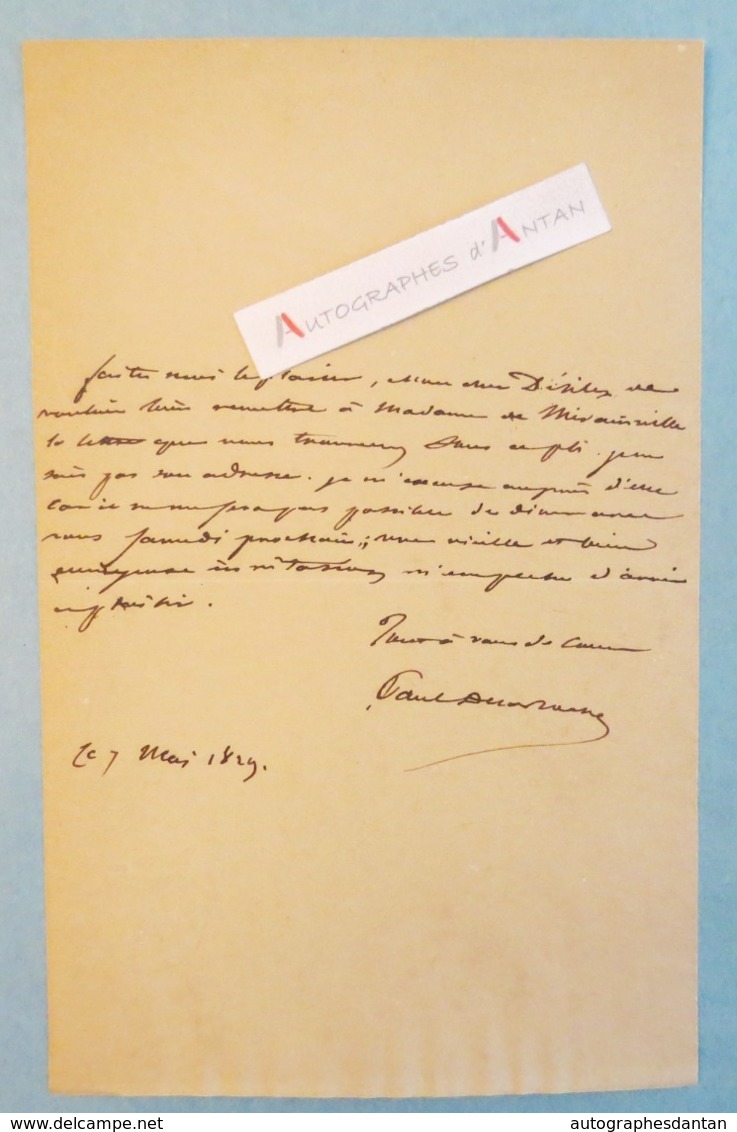 AUTOGRAPHES d'ANTAN
faites moi le plaisir, mon cher Désilex de
vouloir bien remettre à Madame de Miramville
la lettre que vous trouverez dans ce pli. je ne
sais pas son adresse. je m'excuse auprès d'elle
car il ne me sera pas possible de diner avec
vous samedi prochain; une vieille et bien
ennuyeuse invitation m'empeche d'avoir
ce plaisir.
Tout à vous de coeur
Paul
le 7 Mai 1829.
delcampe.net
autographesdantan